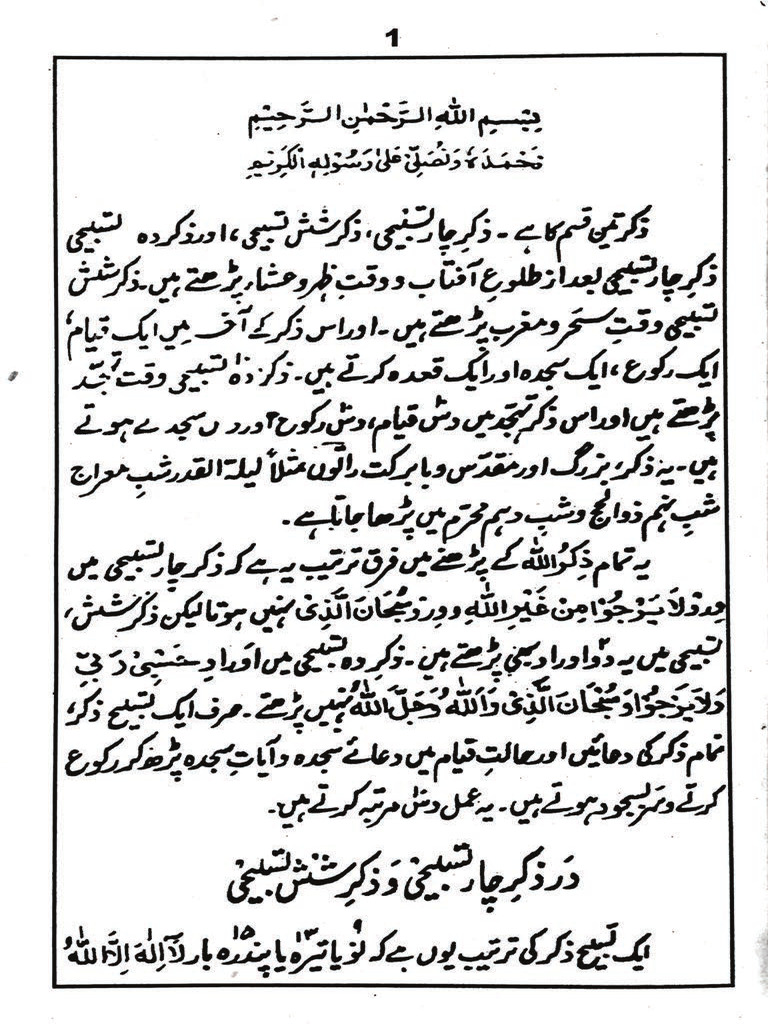 1
بِسْمِ اللهِ الرَّحْمٰنِ الرَّحِيْمِ
نَحْمَدَهٗ وَنُصَلِّیْ عَلٰی رَسُوْلِهِ الْکَرِیْمِ
ذکر تین قسم کا ہے ۔ ذکرِ چار تسبیحی، ذکر شش تسبیحی، اور ذکر دہ تسبیحی
ذکرِ چار تسبیحی بعد از طلوعِ آفتاب و وقتِ ظہر و عشاء پڑھتے ہیں۔ ذکر شش
تسبیحی وقتِ سحر و مغرب پڑھتے ہیں ۔ اور اس ذکر کے آخر میں ایک قیام،
ایک رکوع، ایک سجدہ اور ایک قعدہ کرتے ہیں۔ ذکر دہ تسبیحی وقت تہجّد
پڑھتے ہیں اور اس ذکر تہجّد میں دس قیام، دس رکوع اور دس سجدے ہوتے
ہیں ۔ یہ ذکر، بزرگ اور مقدّس و بابرکت راتوں مثلاً لیلۃ القدر شبِ معراج
شبِ نہم ذوالحج و شبِ دہم محرّم میں پڑھا جاتا ہے ۔
یہ تمام ذِکْرُ اللهِ کے پڑھنے میں فرق ترتیب یہ ہے کہ ذکر چار تسبیحی میں
وِرد وَلَا یَرْجُوْا مِنْ غَیْرِ اللهِ و وِرد سُبْحَانَ الَّذِیْ نہیں ہوتا لیکن ذکر شش،
تسبیحی میں یہ دو اوراد بھی پڑھتے ہیں ۔ ذکرِ دہ تسبیحی میں اوراد حَسْبِیْ رَبِّیْ
وَلَا یَرْجُوْا وَ سُبْحَانَ الَّذِیْ وَ اَللهُ وَجَلَّ اللهُ نہیں پڑھتے ۔ صرف ایک تسبیح ذکر،
تمام ذکر کی دعائیں اور حالتِ قیام میں دعائے سجدہ و آیاتِ سجدہ پڑھ کر رکوع
کرتے و سر بسجود ہوتے ہیں ۔ یہ عمل دس مرتبہ کرتے ہیں۔
دَر ذکرِ چار تسبیحی وَ ذکرِ شش تسبیحی
ایک تسبیح ذکر کی ترتیب یوں ہے کہ نو ۹ یا تیرہ ۱۳ یا پندرہ ۱۵ بار لَآ اِلٰہَ اِلَّا اللهُ